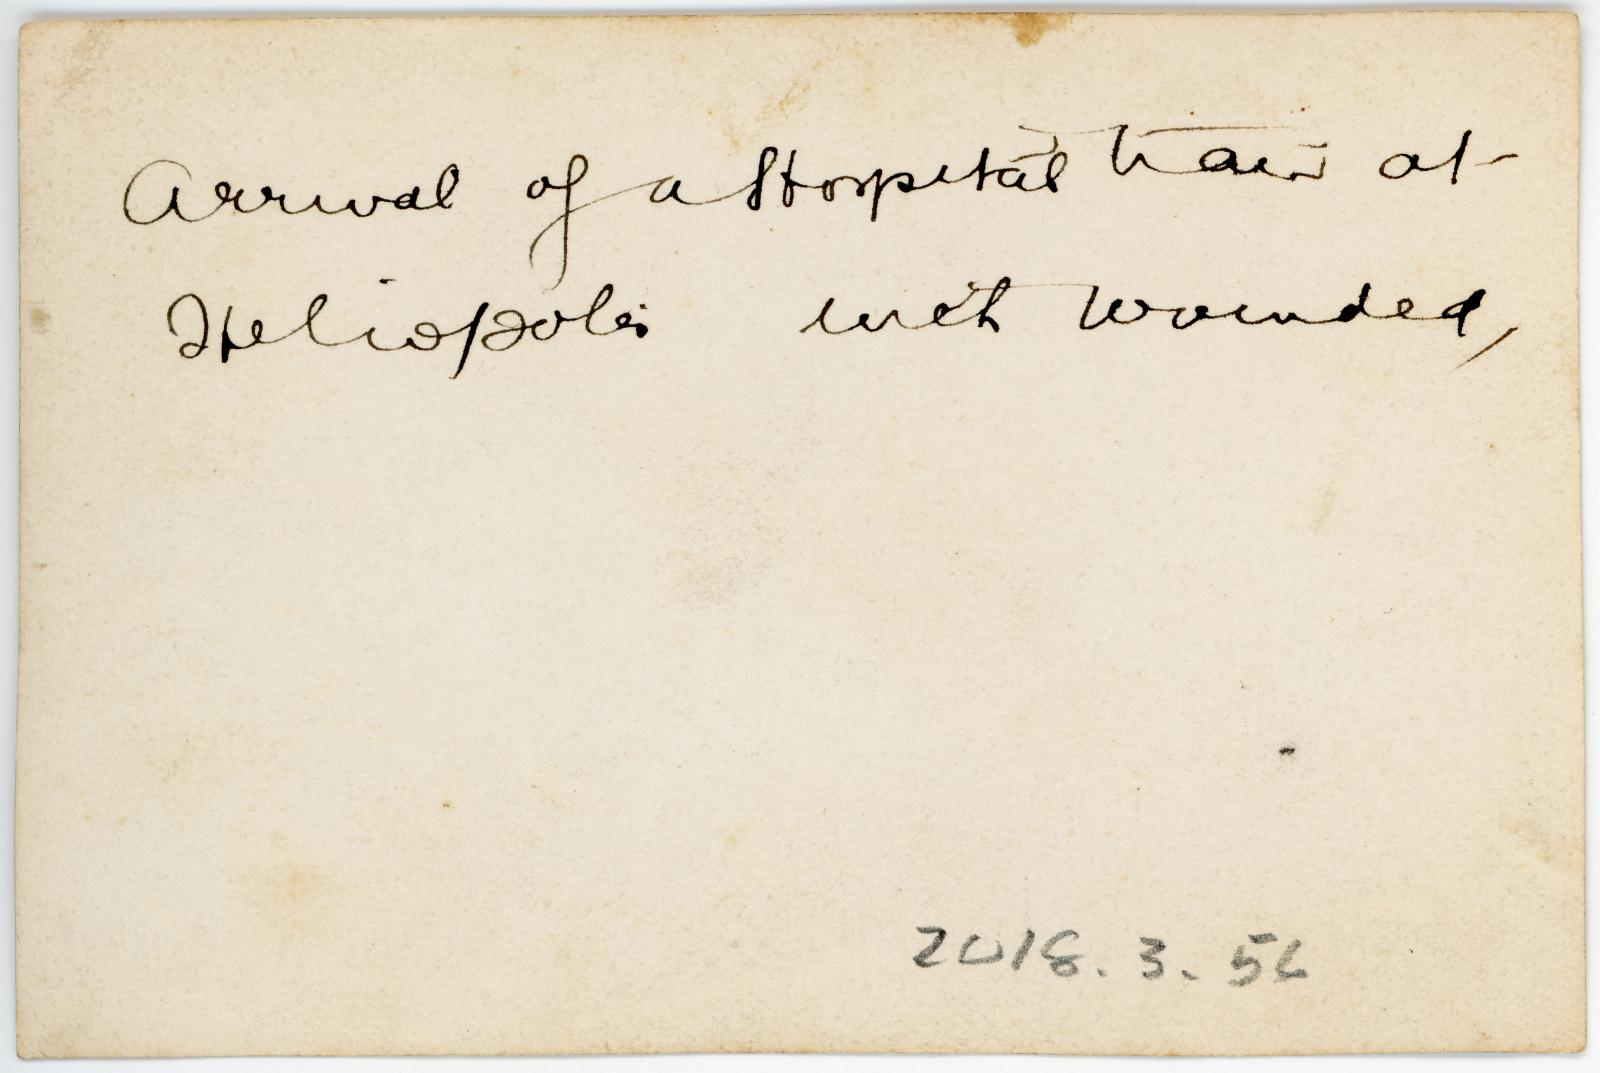 Arrival of a Hospital train at
Heliopolis with wounded,
2018.3.56